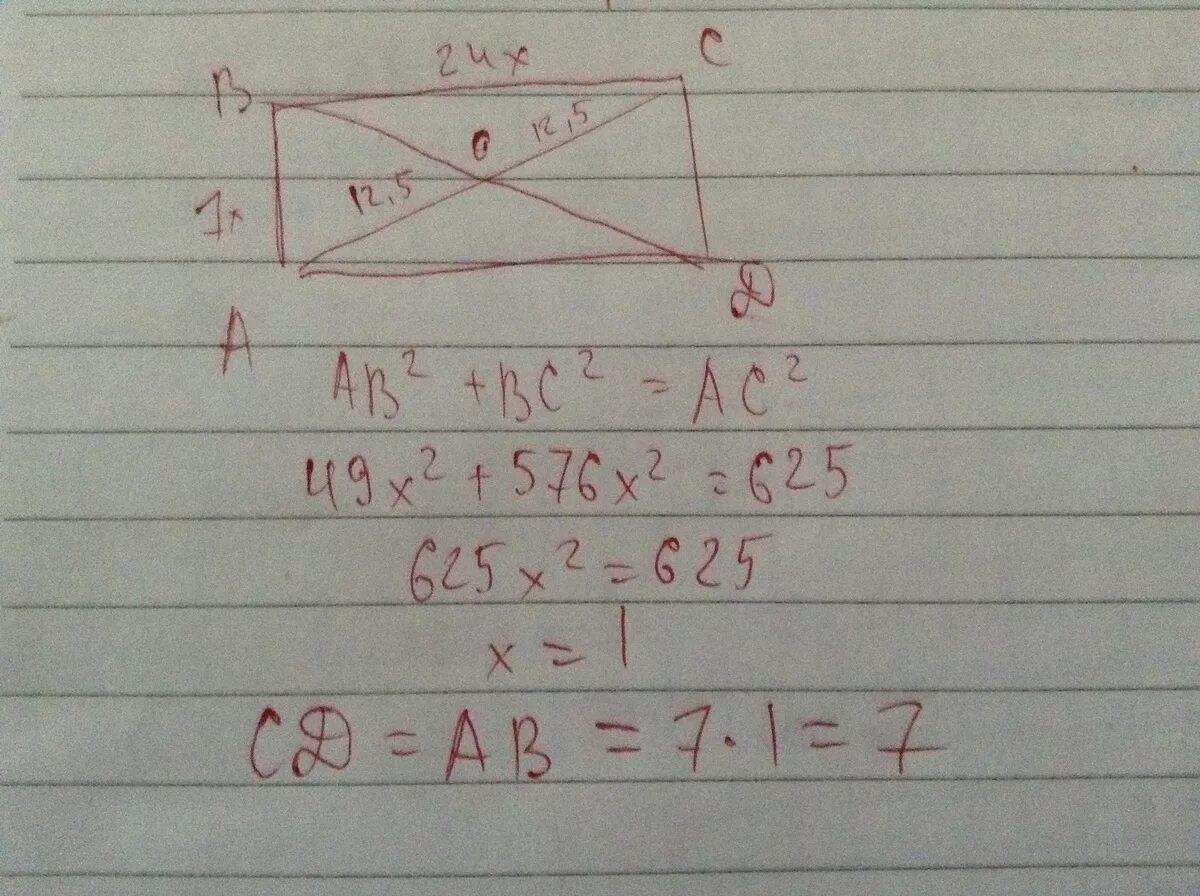 24x
B
C
O
12,5
12,5
7x
A
D
AB² + BC² = AC²
49x² + 576x² = 625
625x² = 625
x = 1
CD = AB = 7·1 = 7